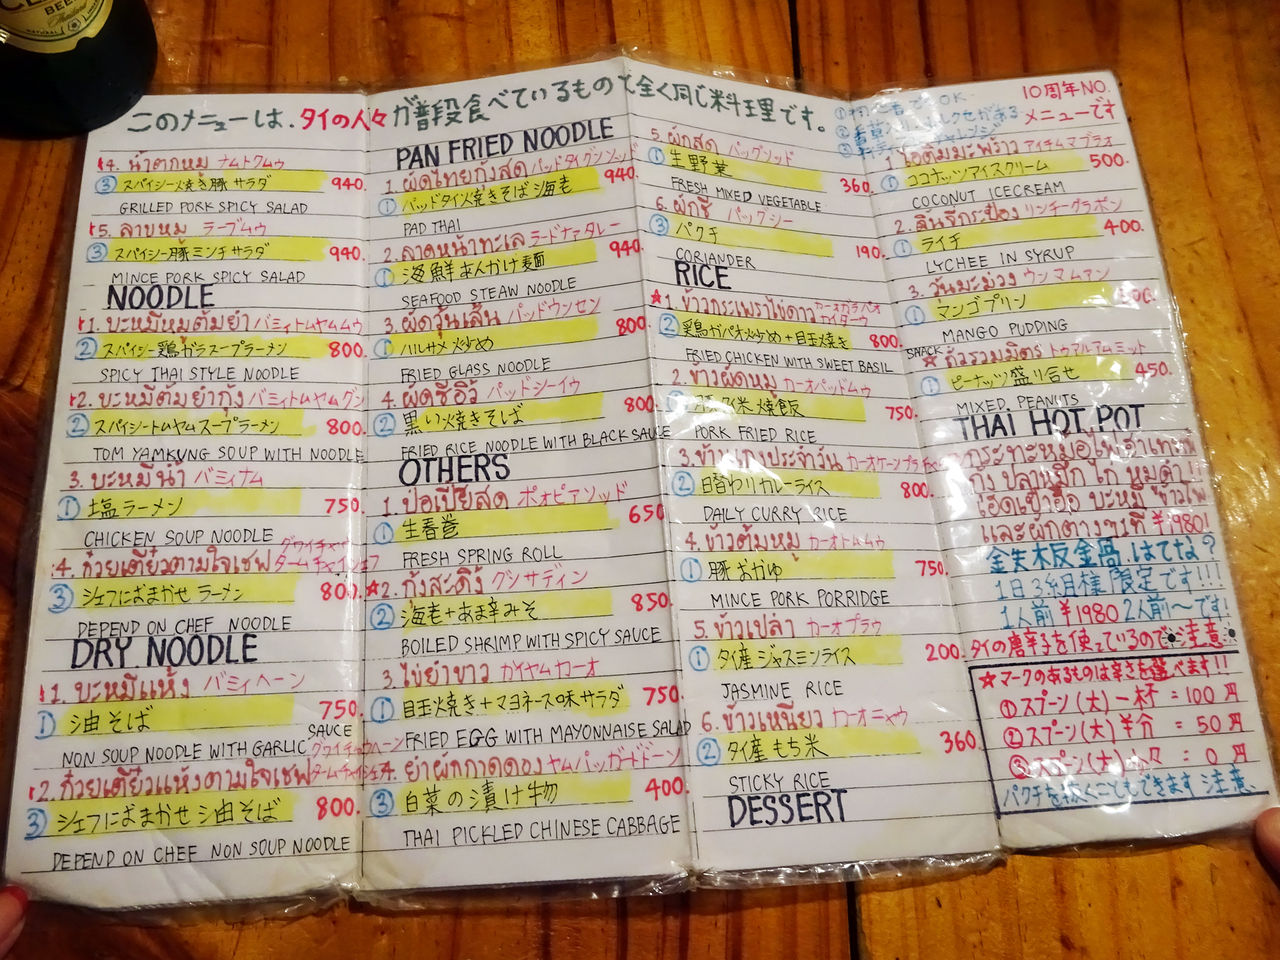 このメニューは、タイの人々が普段食べているものと全く同じ料理です。
4. น้ำตกหมู ナムトクムウ
③ スパイシー焼き豚サラダ 940.
GRILLED PORK SPICY SALAD
5. ลาบหมู ラーブムウ
③ スパイシー豚ミンチサラダ 940.
MINCE PORK SPICY SALAD
NOODLE
1. บะหมี่หมูต้มยำ バミィトムヤムムウ
② スパイシー鶏ガラスープラーメン 800.
SPICY THAI STYLE NOODLE
2. บะหมี่ต้มยำกุ้ง バミィトムヤムグン
② スパイシートムヤムスープラーメン 800.
TOM YAMKUNG SOUP WITH NOODLE
3. บะหมี่น้ำ バミィナム
① 塩ラーメン 750.
CHICKEN SOUP NOODLE
4. ก๋วยเตี๋ยวตามใจเชฟ
③ シェフにおまかせラーメン 800.
DEPEND ON CHEF NOODLE
DRY NOODLE
1. บะหมี่แห้ง バミィヘーン
① 油そば 750.
NON SOUP NOODLE WITH GARLIC SAUCE
2. ก๋วยเตี๋ยวแห้งตามใจเชฟ
③ シェフにおまかせ油そば 800.
DEPEND ON CHEF NON SOUP NOODLE
PAN FRIED NOODLE
1. ผัดไทยกุ้งสด パッドタイグンソッド
① パッドタイ焼きそば海老 940.
PAD THAI
2. ลาดหน้าทะเล ラードナァタレー
① 海鮮あんかけ麺 940.
SEAFOOD STEAW NOODLE
3. ผัดวุ้นเส้น パッドウンセン
① ハルサメ炒め 800.
FRIED GLASS NOODLE
4. ผัดซีอิ้ว パッドシーイゥ
② 黒い焼きそば 800.
FRIED RICE NOODLE WITH BLACK SAUCE
OTHERS
1. ปอเปี๊ยสด ポォピアソッド
① 生春巻 650
FRESH SPRING ROLL
★2. กุ้งสะดิ้ง グンサディン
② 海老+あま辛みそ 850.
BOILED SHRIMP WITH SPICY SAUCE
3. ไข่ยำขาว カイヤムカーオ
① 目玉焼き+マヨネース味サラダ 750.
FRIED EGG WITH MAYONNAISE SALAD
4. ยำผักกาดดอง ヤムパッガードドーン
③ 白菜の漬け物 400.
THAI PICKLED CHINESE CABBAGE
5. ผักสด パッグソッド
① 生野菜 360.
FRESH MIXED VEGETABLE
6. ผักชี パッグシー
③ パクチ 190.
CORIANDER
RICE
★1. ข้าวกระเพราไข่ดาว カーオガラパオカイダーウ
② 鶏ガパオ炒め+目玉焼き 800.
FRIED CHICKEN WITH SWEET BASIL
2. ข้าวผัดหมู カーオパッドムゥ
750.
PORK FRIED RICE
3. ข้าวแกงประจำวัน
② 日替わりカレーライス 800.
DAILY CURRY RICE
4. ข้าวต้มหมู カーオトムムゥ
① 豚おかゆ 750.
MINCE PORK PORRIDGE
5. ข้าวเปล่า カーオプラウ
① タイ産ジャスミンライス 200.
JASMINE RICE
6. ข้าวเหนียว カーオニャウ
② タイ産もち米 360.
STICKY RICE
DESSERT
10周年NO.
メニューです
1. ไอติมมะพร้าว アイチムマプラオ
① ココナッツアイスクリーム 500.
COCONUT ICECREAM
2. ลิ้นจี่กระป๋อง リンチーグラポン
① ライチ 400.
LYCHEE IN SYRUP
3. วุ้นมะม่วง ウンマムアン
① マンゴプリン
MANGO PUDDING
SNACK
★ ถั่วรวมมิตร トゥアルアムミット
① ピーナッツ盛り合せ 450.
MIXED PEANUTS
THAI HOT POT
และผักต่างๆ ¥1980!
はてな?
1日3組様限定です!!!
1人前 ¥1980 2人前~です!
タイの唐辛子を使っているので注意
★マークのあるものは辛さを選べます!!
① スプーン(大)一杯 = 100円
② スプーン(大)半分 = 50円
③ スプーン(大)少々 = 0円
パクチを抜くこともできます 注意